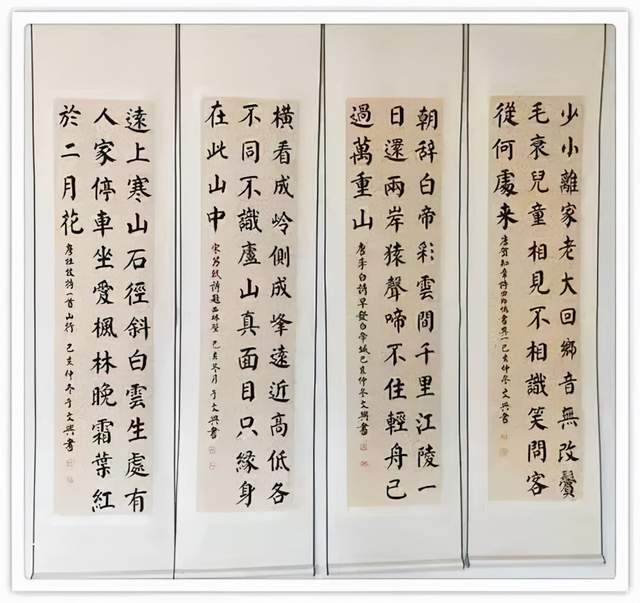 少小離家老大回鄉音無改鬢
毛衰兒童相見不相識笑問客
從何處来
唐賀知章詩回鄉偶書其一己亥仲冬文興書
朝辞白帝彩雲間千里江陵一
日還兩岸猿聲啼不住輕舟已
過萬重山
唐李白詩早發白帝城己亥仲冬文興書
橫看成岭側成峰遠近高低各
不同不識廬山真面目只緣身
在此山中
宋蘇軾詩題西林壁己亥冬月于文興書
遠上寒山石徑斜白雲生處有
人家停車坐愛楓林晚霜葉紅
於二月花
唐杜牧詩一首山行己亥仲冬于文興書